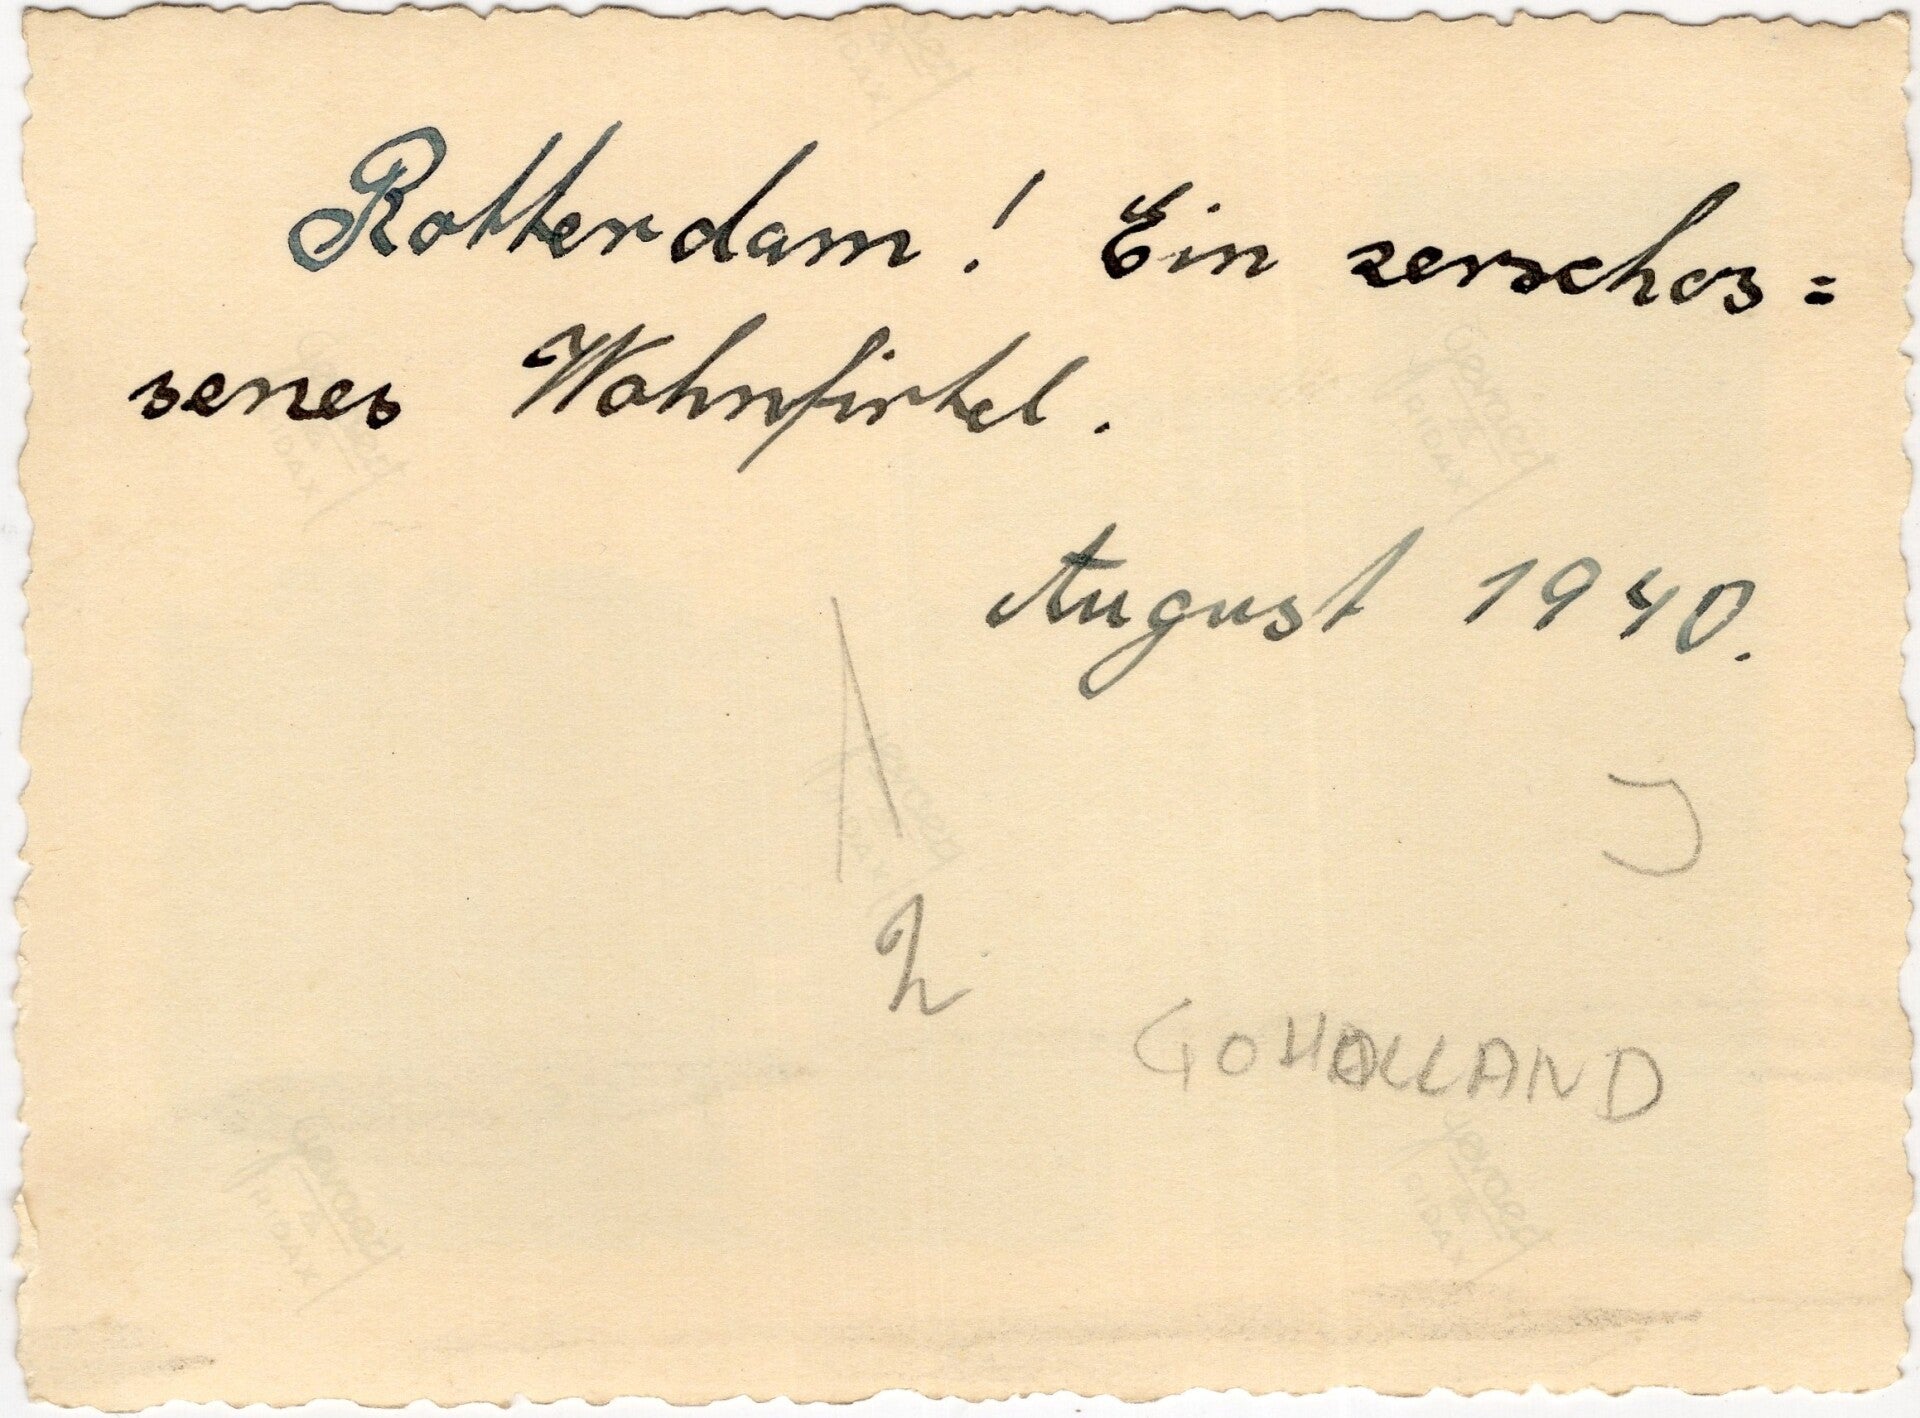 Rotterdam! Ein zerschos=
senes Wohnfirtel.
August 1940.
2
GOHOLLAND